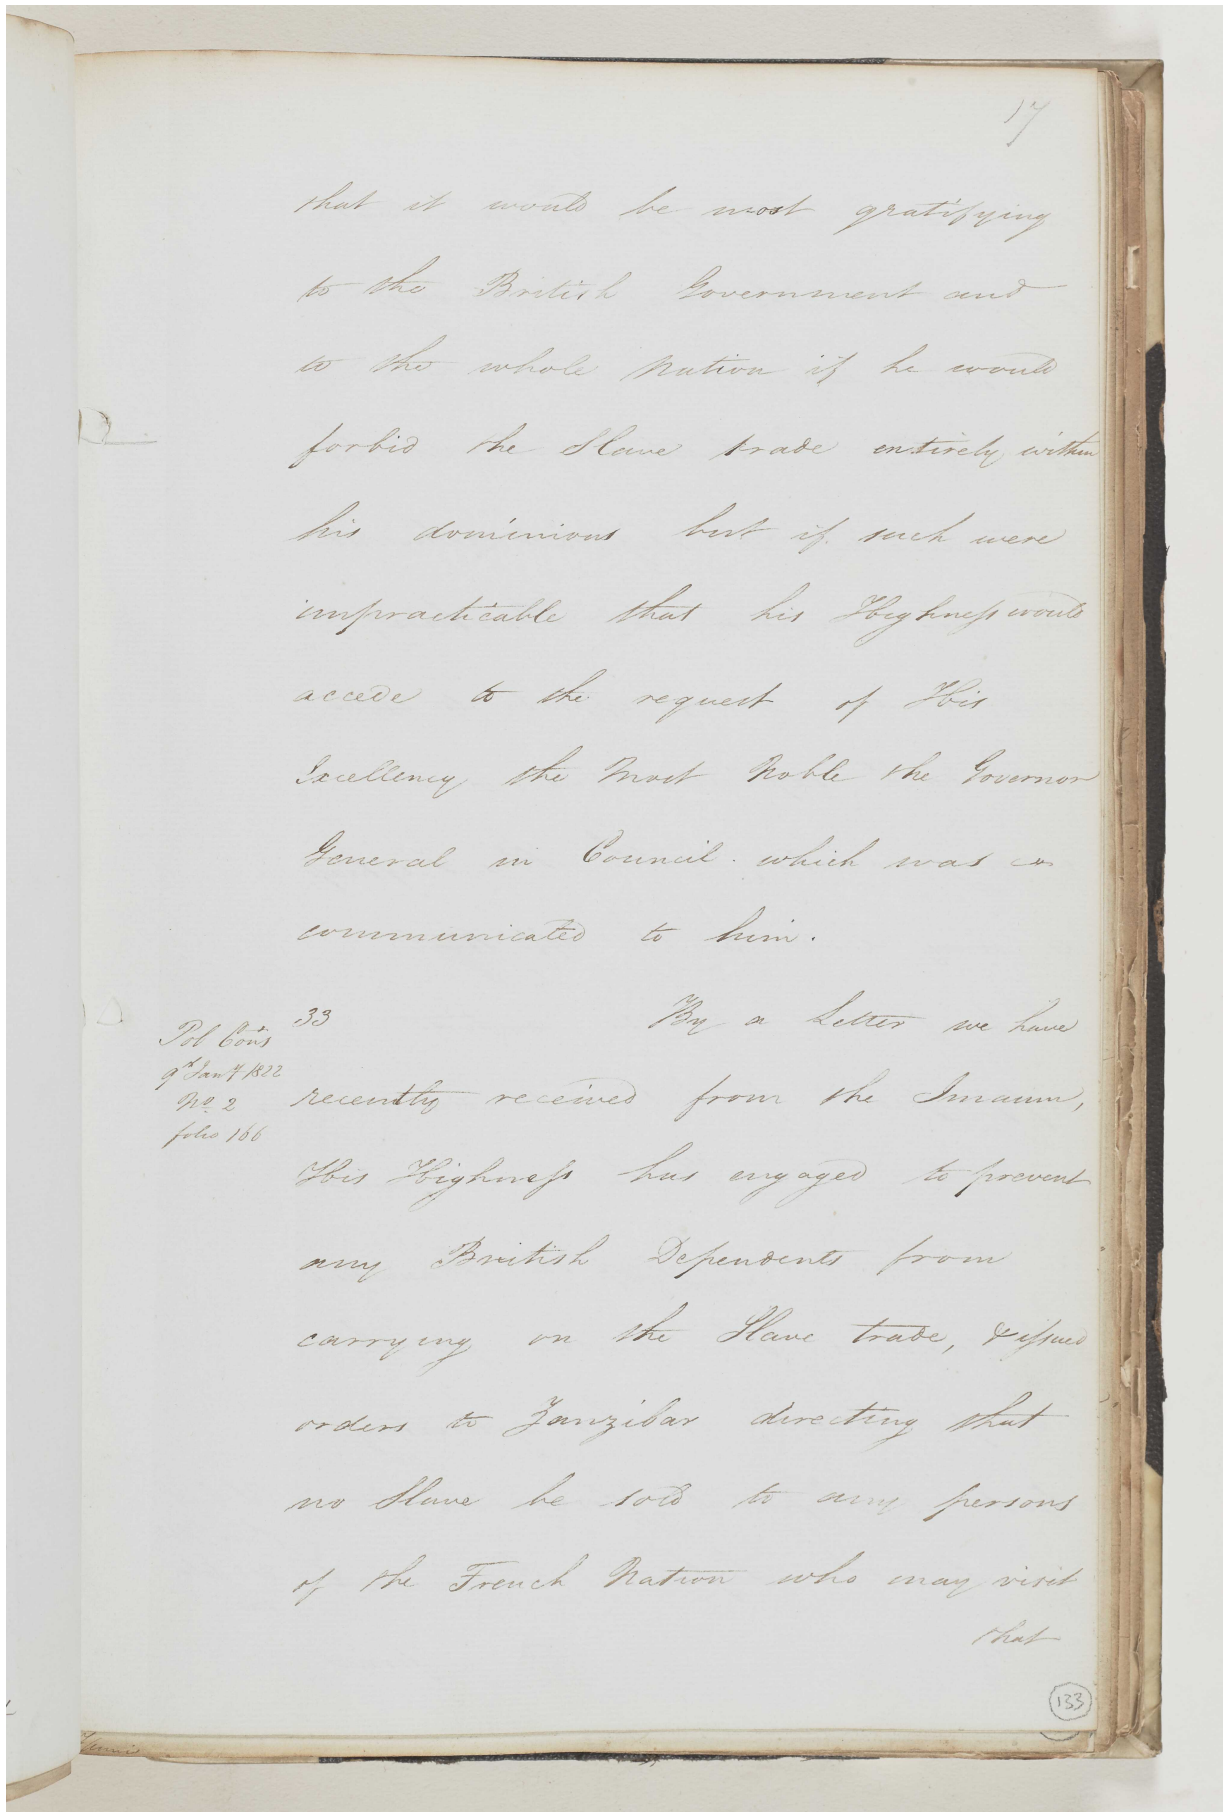 17
that it would be most gratifying
to the British Government and
to the whole Nation if he would
forbid the Slave trade entirely within
his dominions but if such were
impracticable that his Highness would
accede to the request of His
Excellency the Most Noble the Governor
General in Council which was
communicated to him.
33 By a Letter we have
Pol Cons
9th Jany 1822
No. 2
folio 166
recently received from the Imaum,
His Highness has engaged to prevent
any British Dependents from
carrying on the Slave trade, & issued
orders to Zanzibar directing that
no Slave be sold to any persons
of the French Nation who may visit
that
133